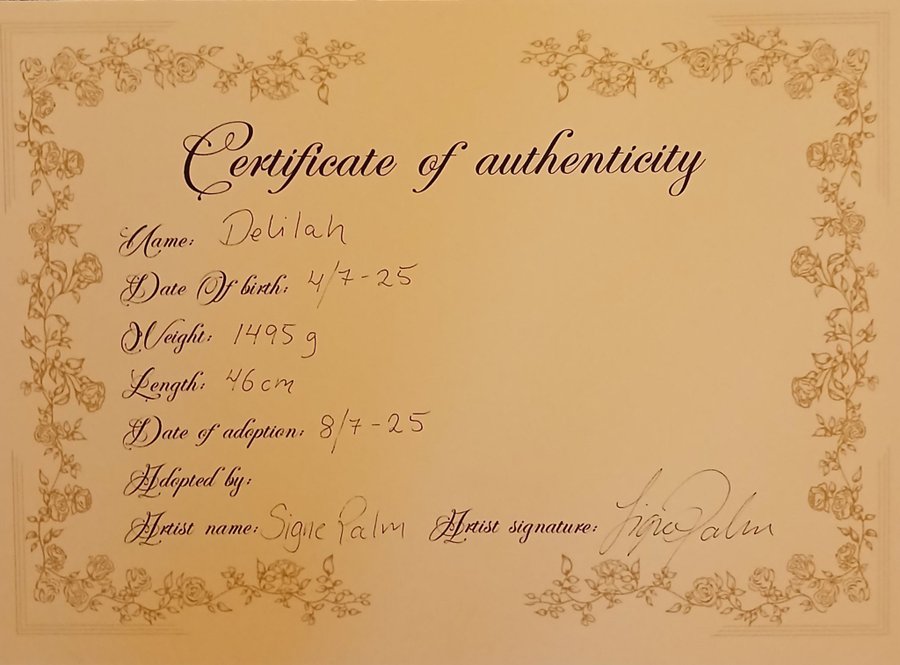 Certificate of authenticity
Name: Delilah
Date Of birth: 4/7-25
Weight: 1495 g
Length: 46 cm
Date of adoption: 8/7-25
Adopted by:
Artist name: Signe Palm Artist signature: Signe Palm